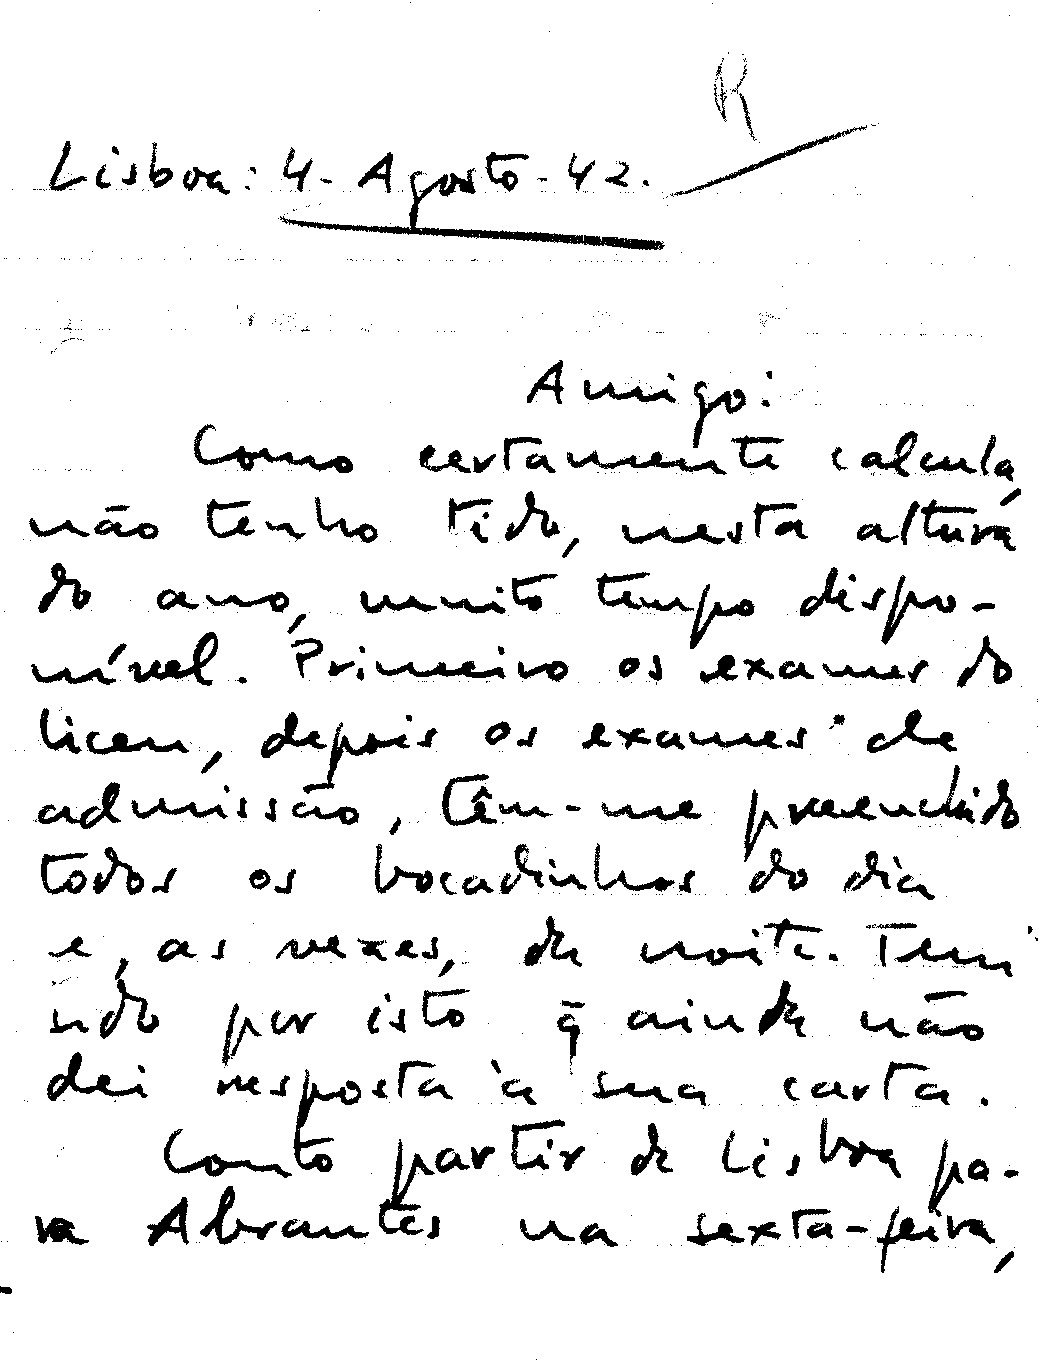 R
Lisboa: 4- Agosto - 42.
Amigo:
Como certamente calcula,
não tenho tido, nesta altura
do ano, muito tempo dispo-
nível. Primeiro os exames do
liceu, depois os exames de
admissão, têm-me preenchido
todos os bocadinhos do dia
e, as vezes, da noite. Tem
sido por isto q̄ ainda não
dei resposta à sua carta.
Conto partir de Lisboa pa-
ra Abrantes na sexta-feira,